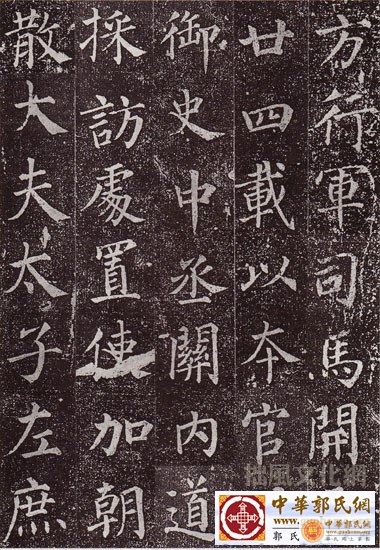 方行軍司馬開
廿四載以本官
御史中丞關内道
採訪處置使加朝
散大夫太子左庶
拙風文化網
中華郭氏網
www.
郭氏